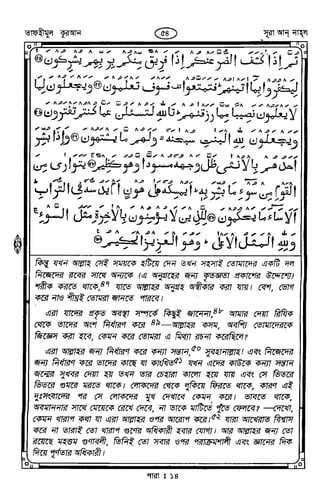 তাফহীমুল কুরআন
৫৪
সূরা আন্ নাহ্‌ল
ثُمَّ إِذَا كَشَفَ الضُّرَّ عَنْكُمْ إِذَا فَرِيقٌ مِنْكُمْ بِرَبِّهِمْ يُشْرِكُونَ
لِيَكْفُرُوا بِمَا آتَيْنَاهُمْ فَتَمَتَّعُوا فَسَوْفَ تَعْلَمُونَ وَيَجْعَلُونَ لِمَا
لَا يَعْلَمُونَ نَصِيبًا مِمَّا رَزَقْنَاهُمْ تَاللَّهِ لَتُسْأَلُنَّ عَمَّا كُنْتُمْ تَفْتَرُونَ
وَيَجْعَلُونَ لِلَّهِ الْبَنَاتِ سُبْحَانَهُ وَلَهُمْ مَا يَشْتَهُونَ وَإِذَا بُشِّرَ
أَحَدُهُمْ بِالْأُنْثَى ظَلَّ وَجْهُهُ مُسْوَدًّا وَهُوَ كَظِيمٌ يَتَوَارَى مِنَ
الْقَوْمِ مِنْ سُوءِ مَا بُشِّرَ بِهِ أَيُمْسِكُهُ عَلَى هُونٍ أَمْ يَدُسُّهُ فِي التُّرَابِ
أَلَا سَاءَ مَا يَحْكُمُونَ لِلَّذِينَ لَا يُؤْمِنُونَ بِالْآخِرَةِ مَثَلُ السَّوْءِ
وَلِلَّهِ الْمَثَلُ الْأَعْلَى وَهُوَ الْعَزِيزُ الْحَكِيمُ
কিন্তু যখন আল্লাহ সেই সময়কে হটিয়ে দেন তখন সহসাই তোমাদের একটি দল
নিজেদের রবের সাথে অন্যকে (এ অনুগ্রহের জন্য কৃতজ্ঞতা প্রকাশের উদ্দেশ্যে)
শরীক করতে থাকে,৪৭ যাতে আল্লাহর অনুগ্রহ অস্বীকার করা যায়। বেশ, ভোগ
করে নাও শীঘ্রই তোমরা জানতে পারবে।
এরা যাদের প্রকৃত অবস্থা সম্পর্কে কিছুই জানেনা,৪৮ আমার দেয়া রিযিক
থেকে তাদের অংশ নির্ধারণ করে ৪৯—আল্লাহর কসম, অবশ্যি তোমাদেরকে
জিজ্ঞেস করা হবে, কেমন করে তোমরা এ মিথ্যা রচনা করেছিলে?
এরা আল্লাহর জন্য নির্ধারণ করে কন্যা সন্তান,৫০ সুবহানাল্লাহ! এবং নিজেদের
জন্য নির্ধারণ করে তাদের কাছে যা কাংখিত৫১ যখন এদের কাউকে কন্যা সন্তান
জন্মের সুখবর দেয়া হয় তখন তার চেহারা কালো হয়ে যায় এবং সে ভিতরে
ভিতরে গুমরে মরতে থাকে। লোকদের থেকে লুকিয়ে ফিরতে থাকে, কারণ এই
দুঃসংবাদের পর সে লোকদের মুখ দেখাবে কেমন করে। ভাবতে থাকে,
অবমাননার সাথে মেয়েকে রেখে দেবে, না তাকে মাটিতে পুঁতে ফেলবে?—দেখো,
কেমন খারাপ কথা যা এরা আল্লাহর ওপর আরোপ করে।৫২ যারা আখেরাত বিশ্বাস
করে না তারাই তো খারাপ গুণের অধিকারী হবার যোগ্য। আর আল্লাহর জন্য তো
রয়েছে মহত্তম গুণাবলী, তিনিই তো সবার ওপর পরাক্রমশালী এবং জ্ঞানের দিক
দিয়ে পূর্ণতার অধিকারী।
পারা : ১৪